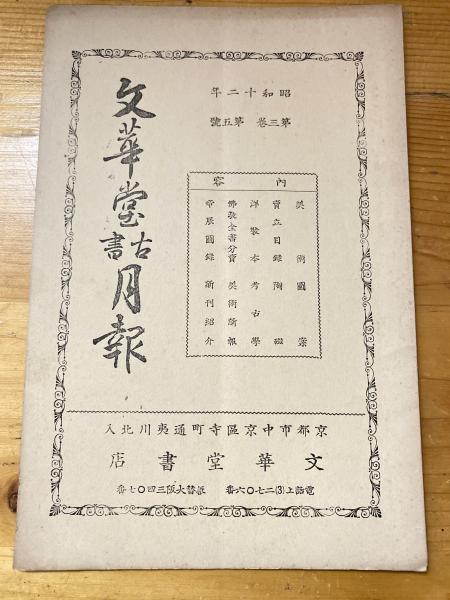 昭和十二年
第三卷 第五號
文華堂古書月報
內容
美術圖案
賣立目錄 陶磁
洋裝本考古學
佛敎全書分賣 美術新報
帝展圖錄 新刊紹介
京都市中京區寺町通夷川北入
文華堂書店
電話上(3)二七〇六番 振替大阪三四〇七番